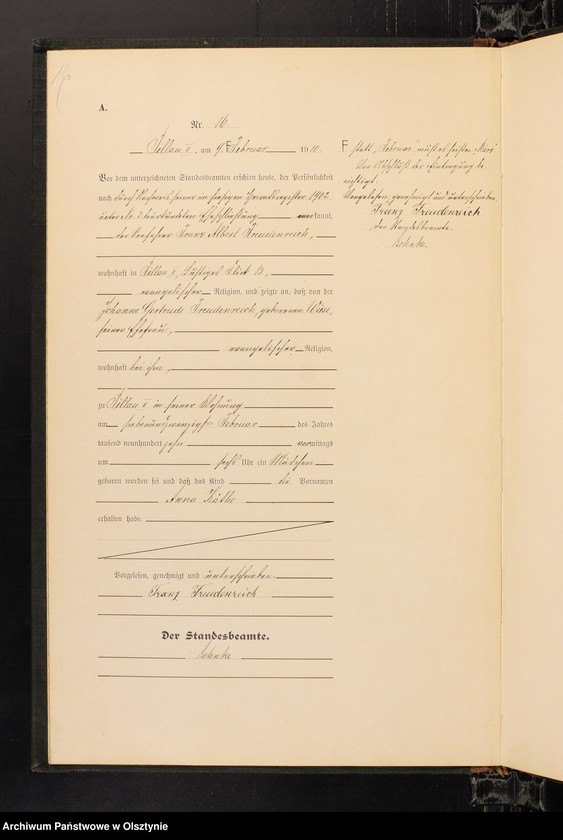 A.
Nr. 16.
Pillau II, am 9. Februar 1910
Vor dem unterzeichneten Standesbeamten erschien heute, der Persönlichkeit
nach durch Nachweis seiner im hiesigen Heiratsregister 1902
unter No. beurkundeten Eheschließung anerkannt,
der Franz Albert Freudenreich,
wohnhaft in Pillau II, Lustiges Flick 13,
evangelischer Religion, und zeigte an, daß von der
Johanne Gertrude Freudenreich, geborenen
seiner Ehefrau,
evangelischer Religion,
wohnhaft bei ihm,
zu Pillau II in seiner Wohnung
am siebenundzwanzigsten Februar des Jahres
tausend neunhundert zehn vormittags
um sechs Uhr ein Mädchen
geboren worden sei und daß das Kind die Vornamen
Anna Käthe
erhalten habe.
Vorgelesen, genehmigt und unterschrieben.
Franz Freudenreich
Der Standesbeamte.
F statt "Februar" muß es heißen "März"
Vor Abschluß der Eintragung be-
richtigt.
Vorgelesen, genehmigt und unterschrieben
Franz Freudenreich
Der Standesbeamte.
Archiwum Państwowe w Olsztynie